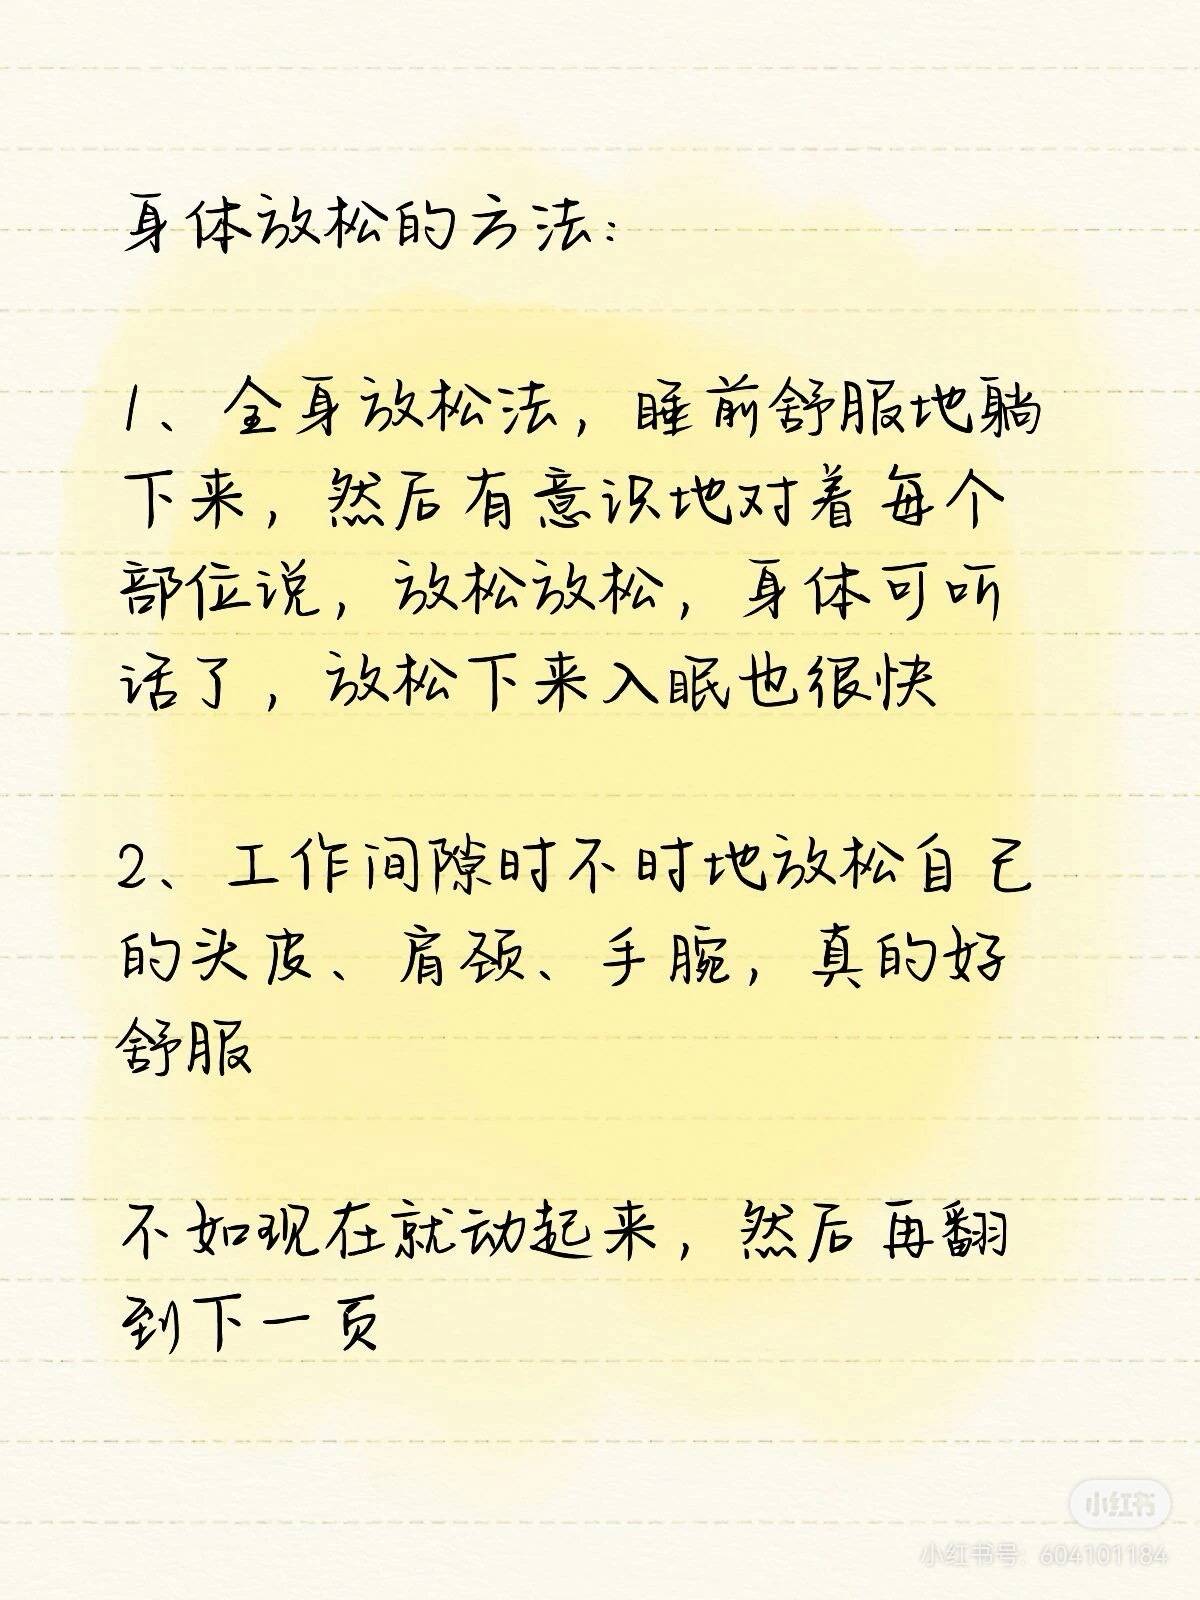 身体放松的方法:
1、全身放松法，睡前舒服地躺
下来，然后有意识地对着每个
部位说，放松放松，身体可听
话了，放松下来入眠也很快
2、工作间隙时不时地放松自己
的头皮、肩颈、手腕，真的好
舒服
不如现在就动起来，然后再翻
到下一页
小红书
小红书号: 604101184